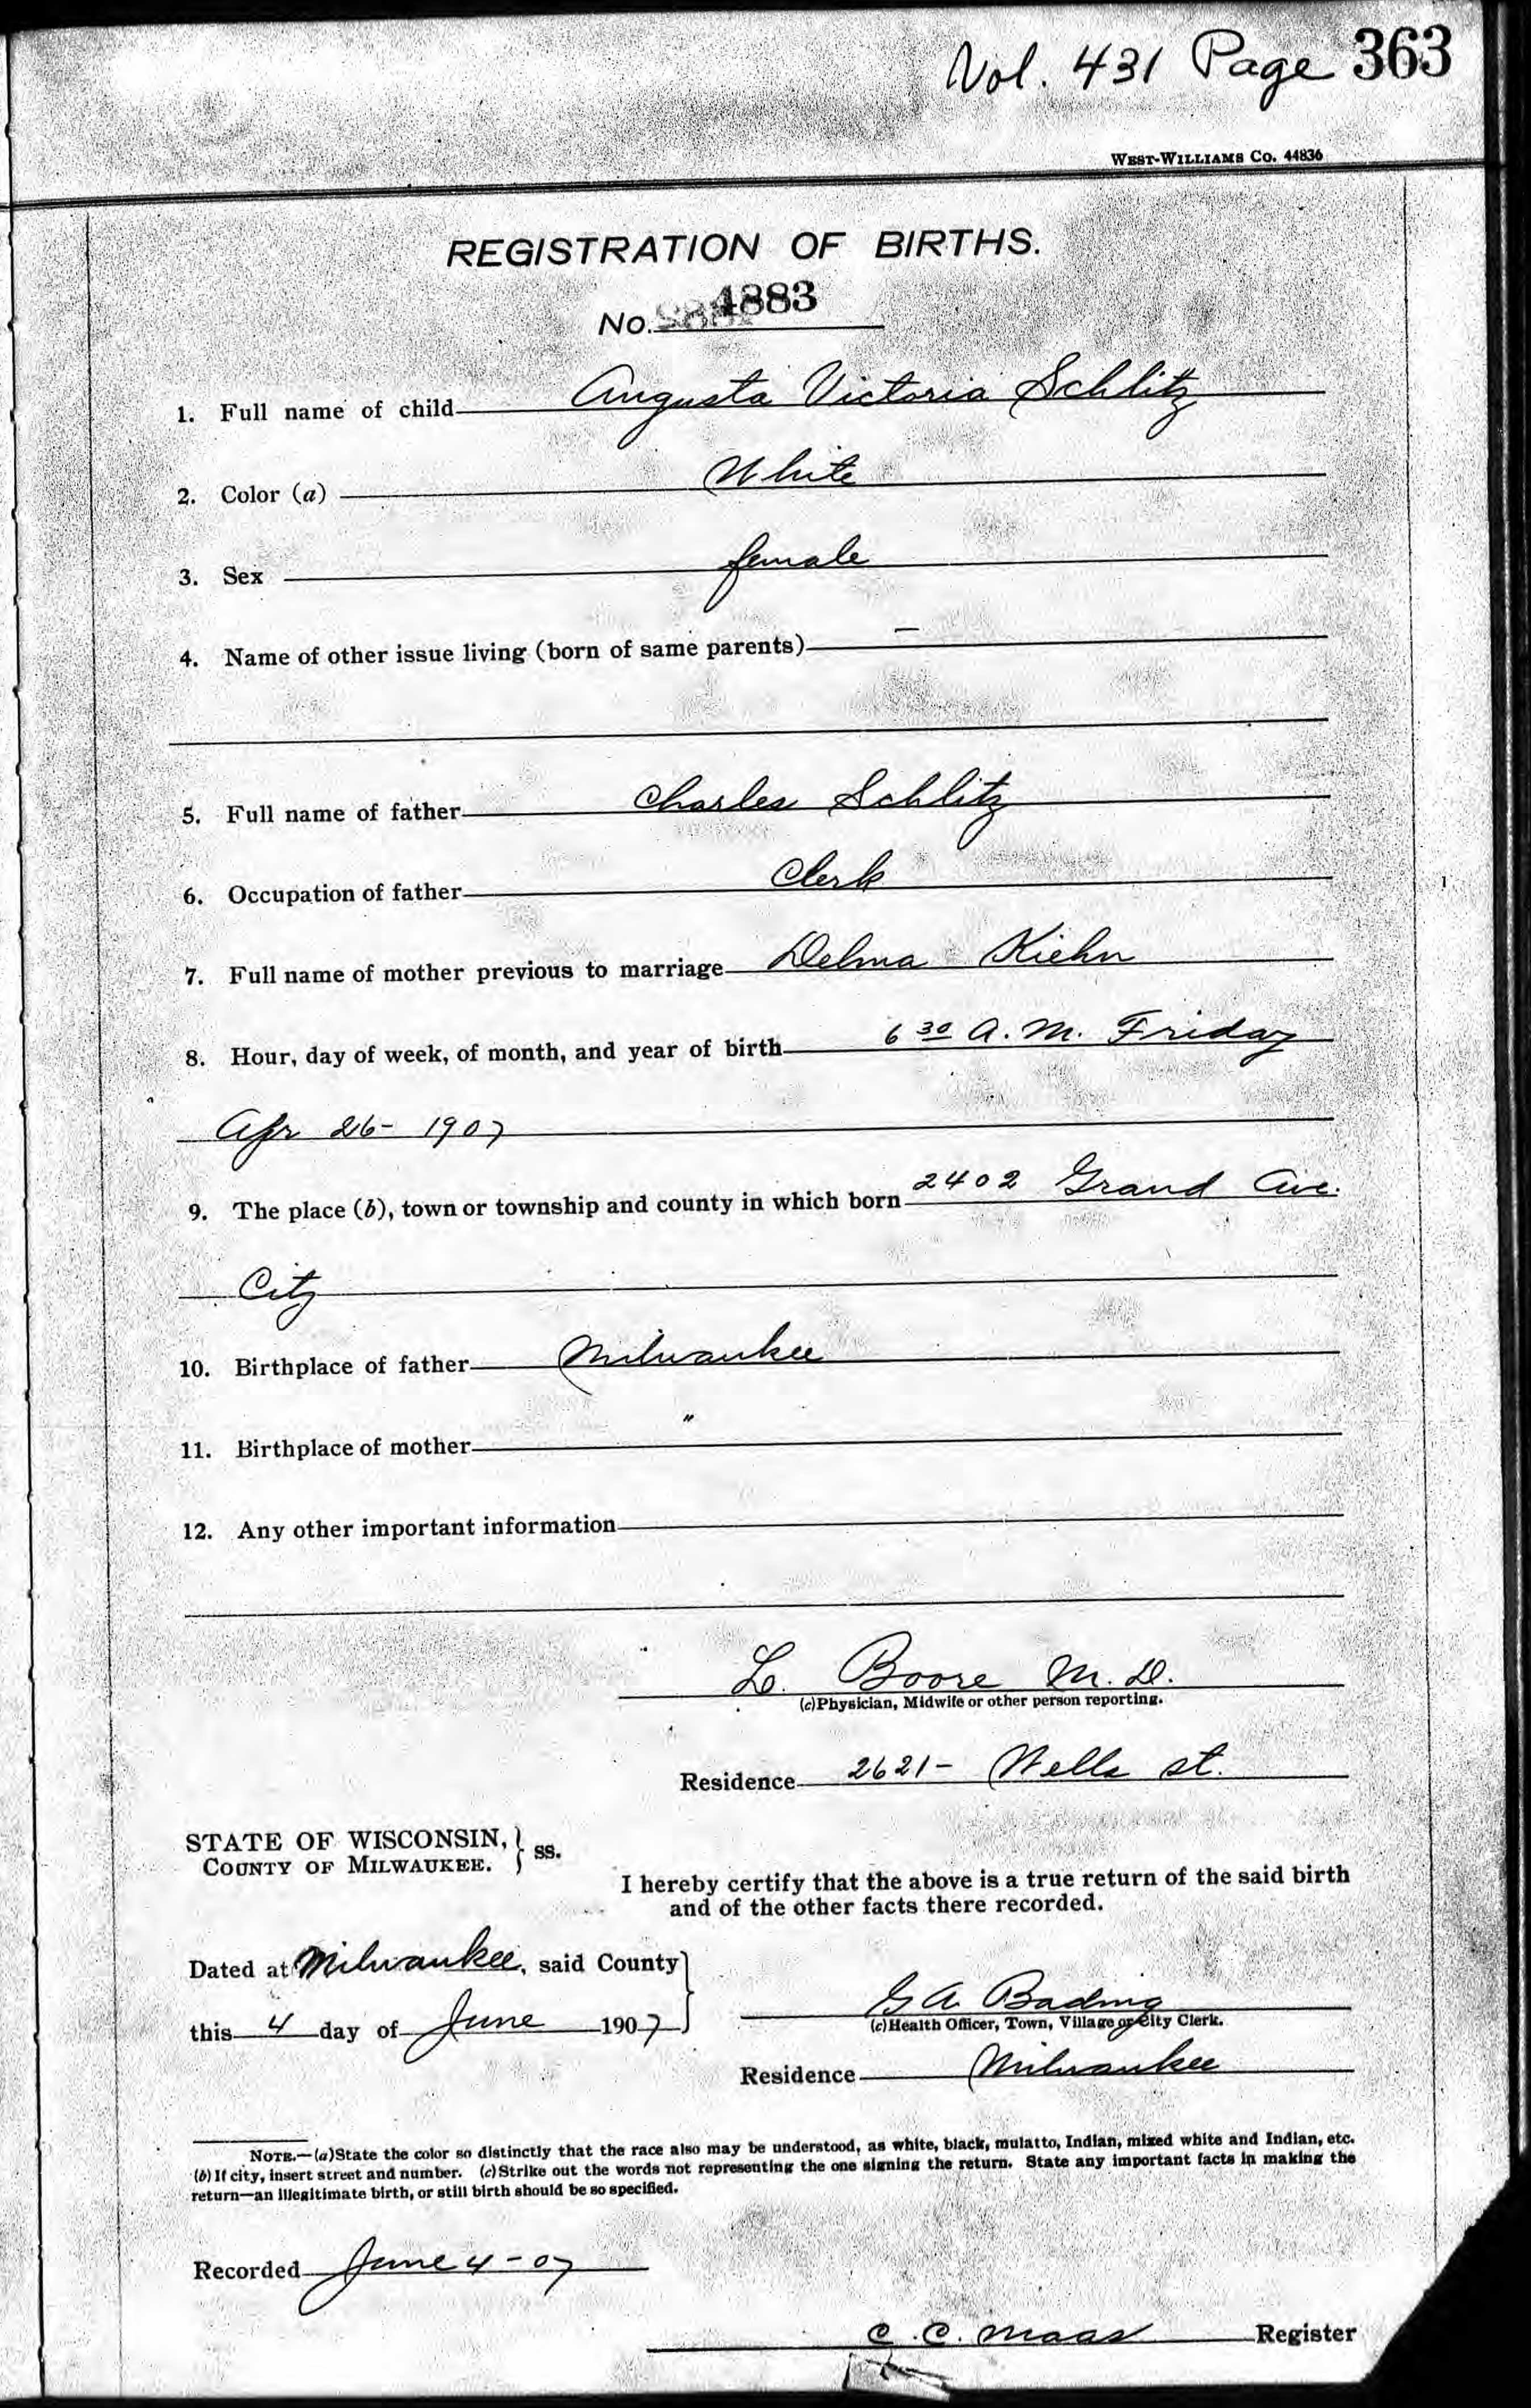 Vol. 431 Page 363
WEST-WILLIAMS CO. 44836
REGISTRATION OF BIRTHS.
No. 4883
1. Full name of child Augusta Victoria Schlitz
2. Color (a) White
3. Sex female
4. Name of other issue living (born of same parents) —
5. Full name of father Charles Schlitz
6. Occupation of father Clerk
7. Full name of mother previous to marriage Delma Kiehn
8. Hour, day of week, of month, and year of birth 6 30 A.M. Friday
Apr 26- 1907
9. The place (b), town or township and county in which born 2402 Grand Ave.
City
10. Birthplace of father Milwaukee
11. Birthplace of mother "
12. Any other important information
L. Boore M.D.
(c) Physician, Midwife or other person reporting.
Residence 2621- Wells st.
STATE OF WISCONSIN, } ss.
COUNTY OF MILWAUKEE. }
I hereby certify that the above is a true return of the said birth
and of the other facts there recorded.
Dated at Milwaukee, said County }
this 4 day of June 1907 }
G A Bading
(c) Health Officer, Town, Village or City Clerk.
Residence Milwaukee
NOTE.—(a) State the color so distinctly that the race also may be understood, as white, black, mulatto, Indian, mixed white and Indian, etc.
(b) If city, insert street and number. (c) Strike out the words not representing the one signing the return. State any important facts in making the
return—an illegitimate birth, or still birth should be so specified.
Recorded June 4-07
C.C. Maas Register